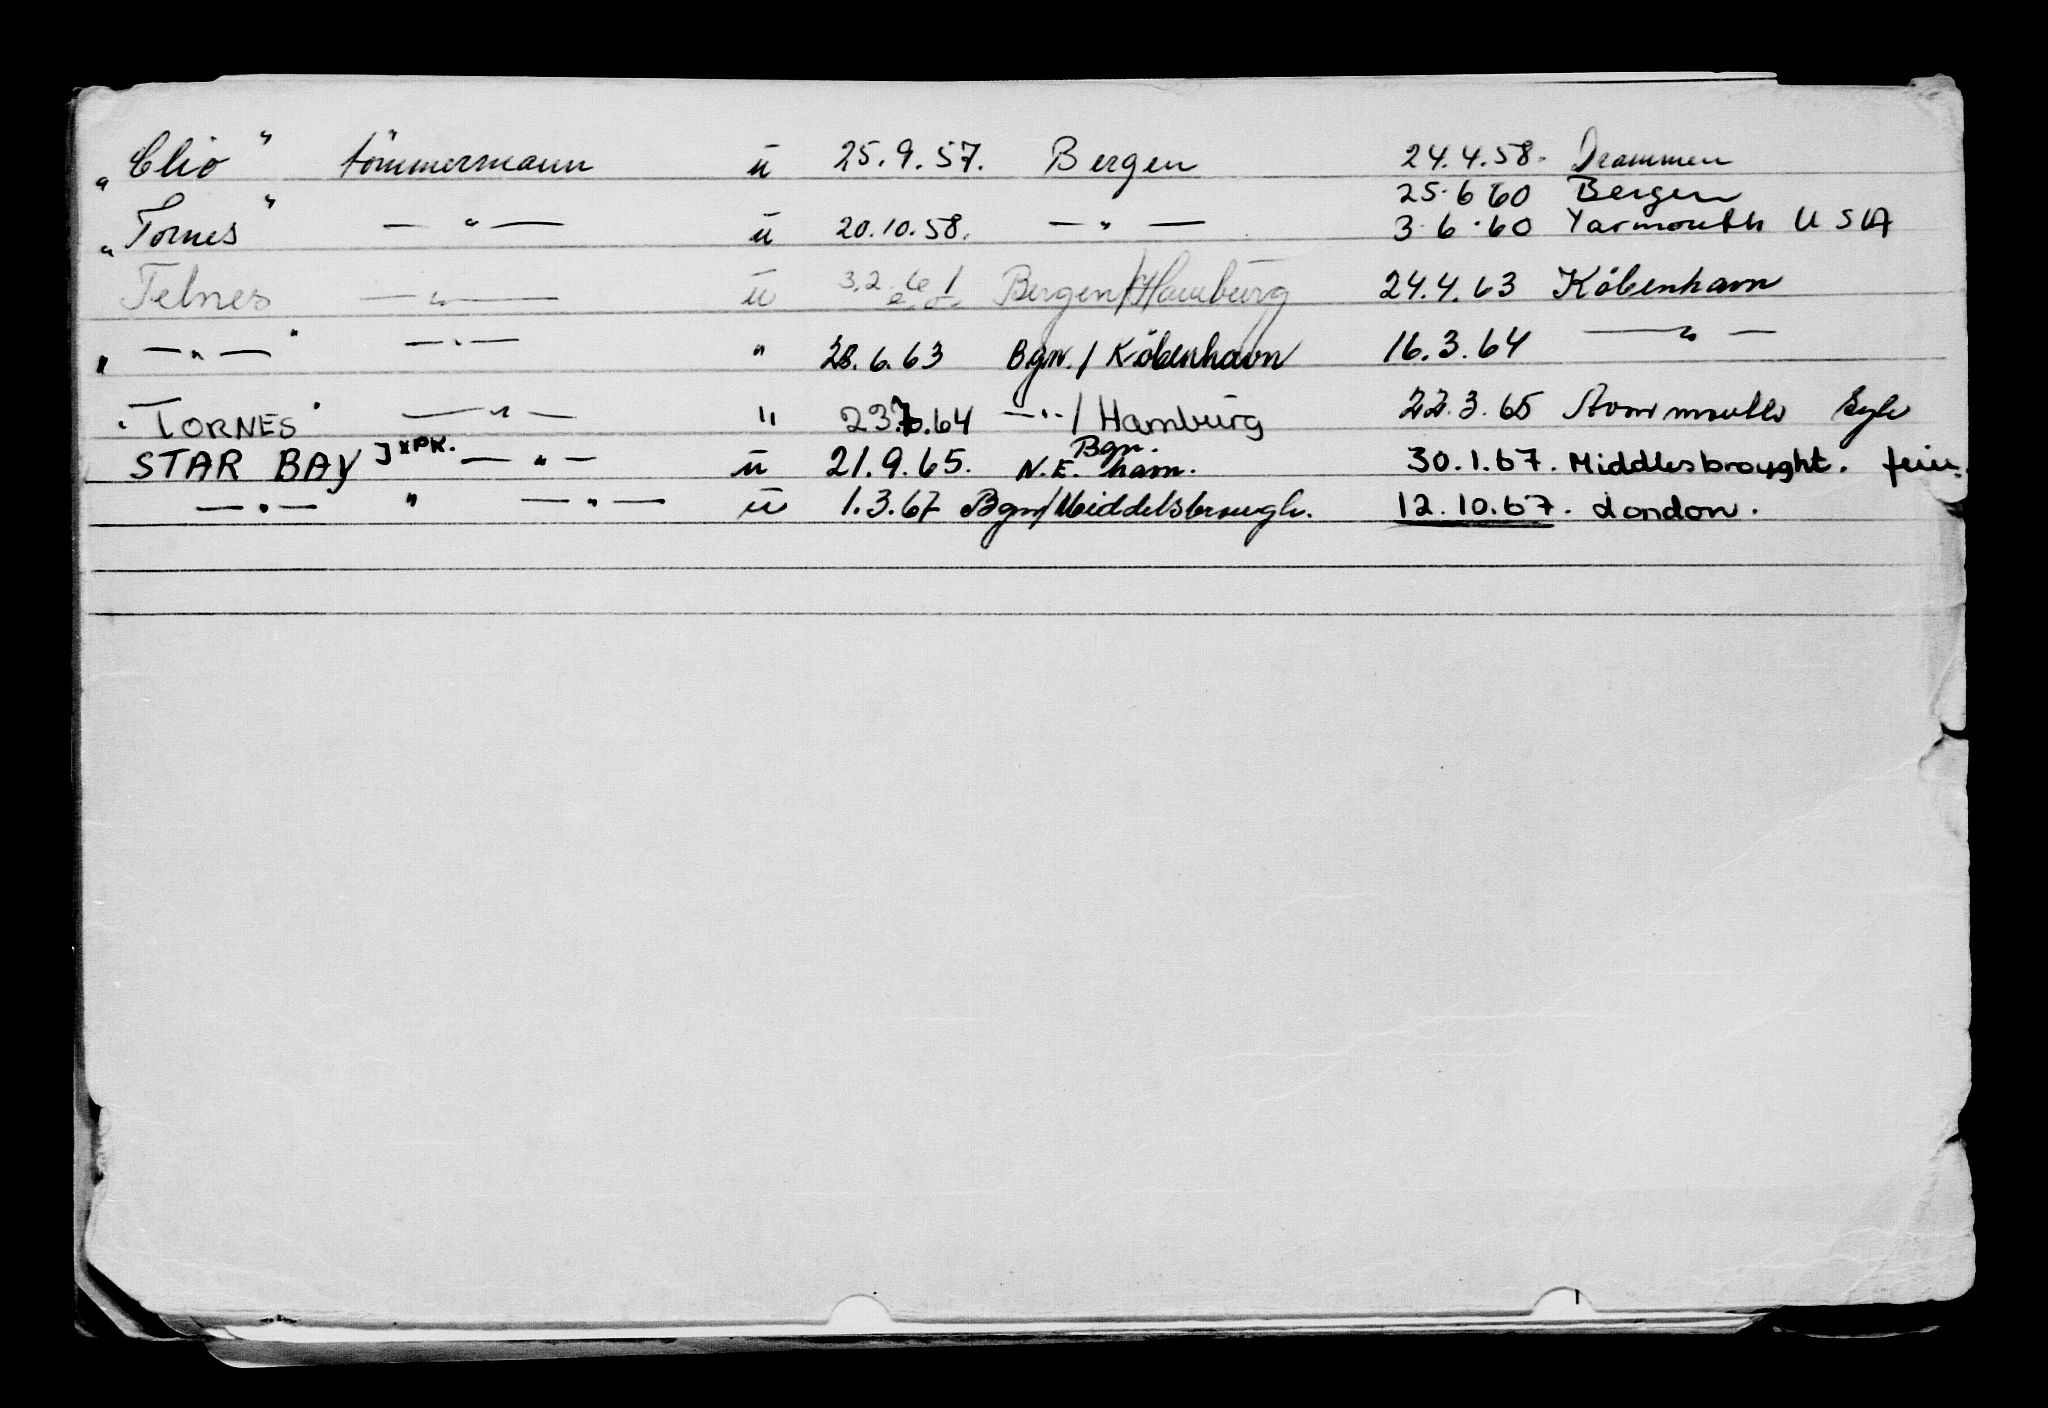 „Clio" tömmermann ū 25.9.57. Bergen 24.4.58. Drammen
25.6 60 Bergen
„Tornes" — " — ū 20.10.58. — " — 3.6.60 Yarmouth USA
Telnes — " — ū 3.2.61 Bergen/Hamburg 24.4.63 Köbenhavn
„ — " — " — " — " 28.6.63 Bgn./Köbenhavn 16.3.64 — " —
"TORNES" — " — " 23.7.64 — " — / Hamburg 22.3.65 Avonmouth
STAR BAY ] xPK. — " — ū 21.9.65. Bgn. N.E. ham. 30.1.67. Middlesbroyght.
— " — " — " — ū 1.3.67 Bgn/Middelsbrough. 12.10.67. London.